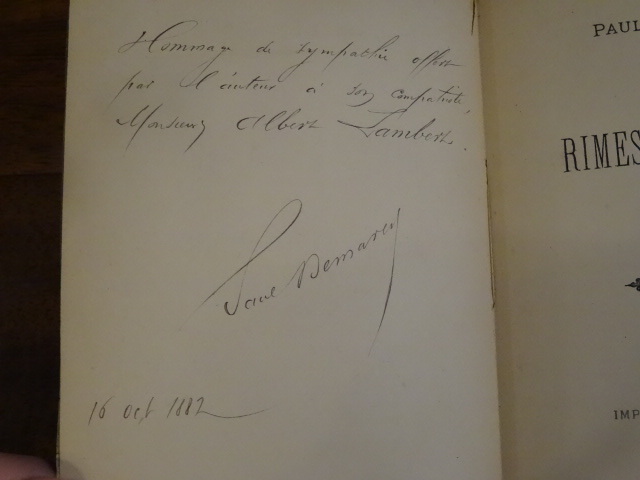 Hommage de sympathie offert
par l'auteur à son compatriote,
Monsieur Albert Lambert.
Paul Demarey
16 oct 1882
PAUL
RIMES
IMP